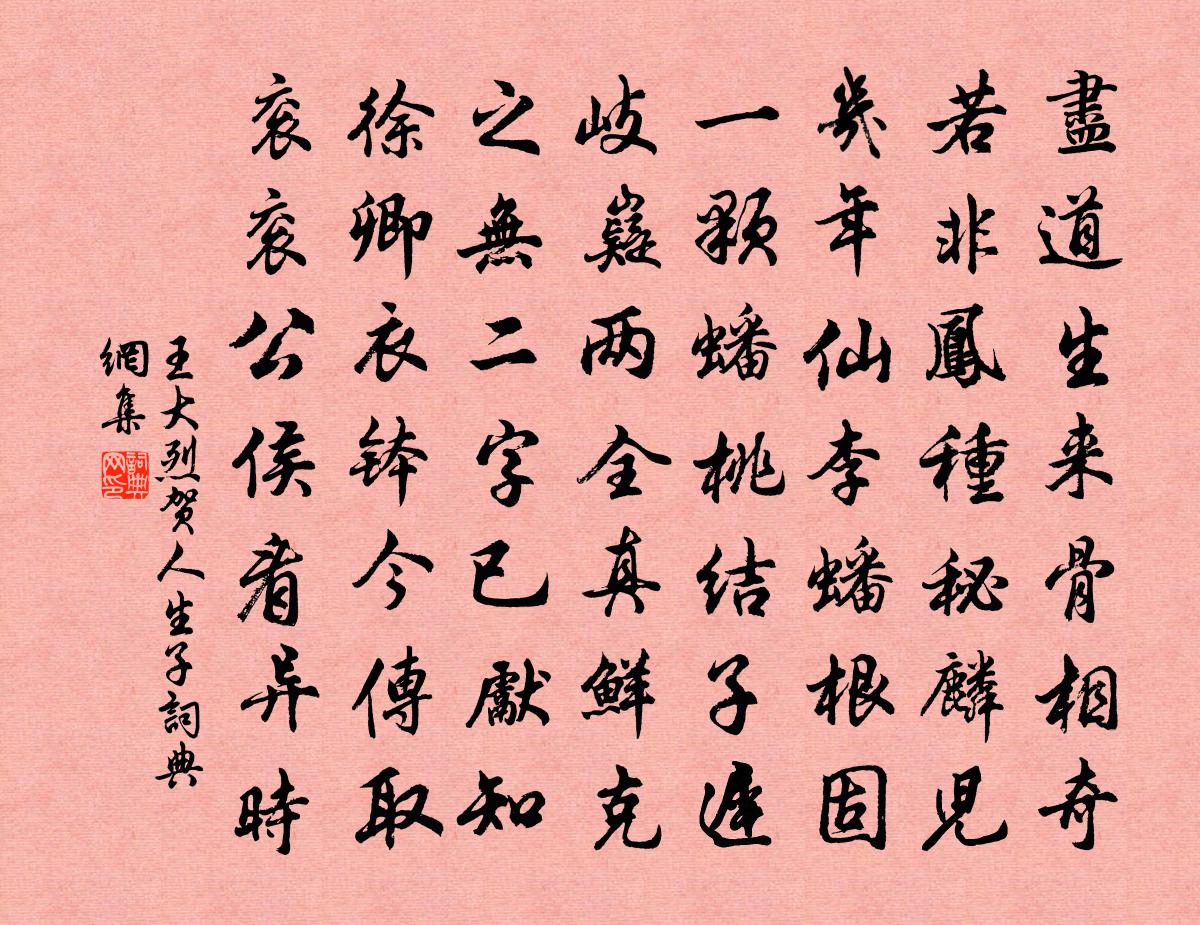 盡道生来骨相奇
若非鳳種秘麟児
幾年仙李蟠根固
一顆蟠桃結子遲
岐嶷两全真鮮克
之無二字已獻知
徐卿衣钵今傳取
衮衮公侯看异時
王大烈贺人生子詞典
網集
詞典
网印